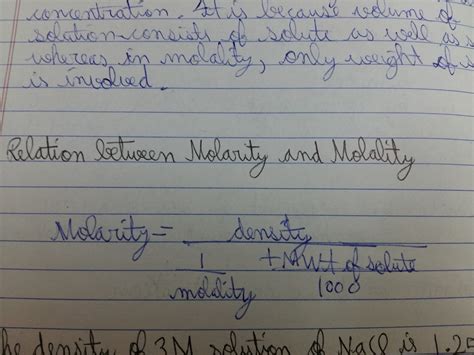 concentration. It is because volume of
solution consists of solute as well as s
whereas in molality, only weight of s
is involved.
Relation between Molarity and Molality
Molarity = density
1 + M Wt of solute
molality 1000
he density of 3M solution of NaCl is 1.25